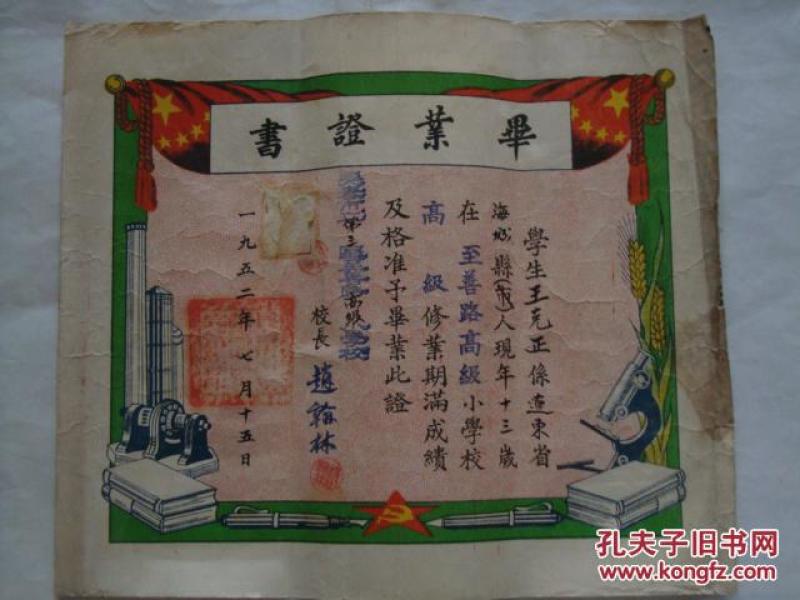 畢業證書
學生王克正係遼東省
海城縣(市)人現年十三歲
在至善路高級小學校
高級修業期滿成績
及格准予畢業此證
校長 趙翰林
一九五二年七月十五日
孔夫子旧书网
www.kongfz.com